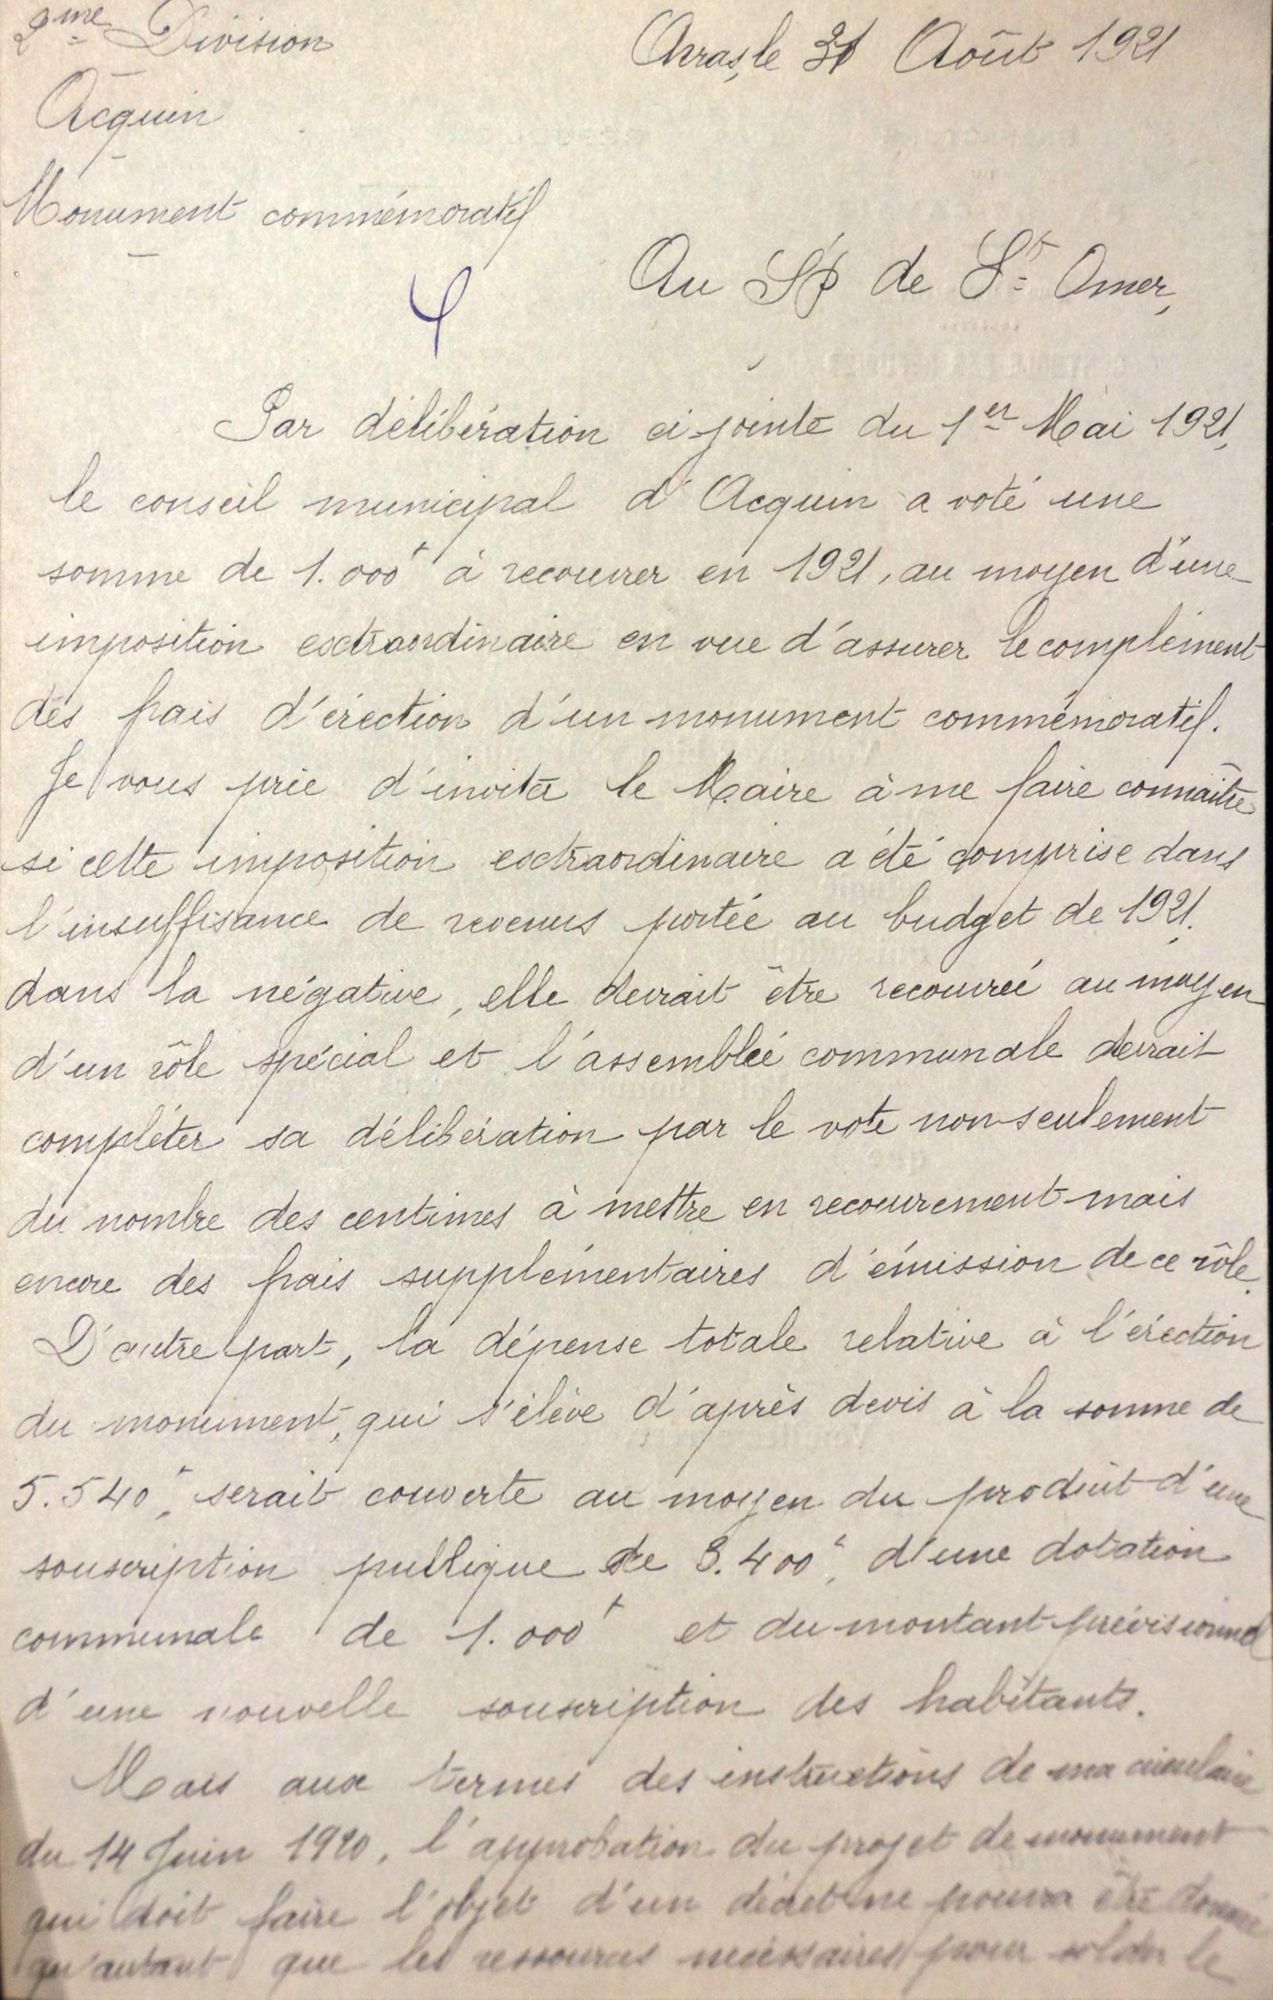 2me Division
Arras, le 31 Août 1921
Acquin
Monument commémoratif
Au SP de St Omer,
Par délibération ci-jointe du 1er Mai 1921,
le conseil municipal d'Acquin a voté une
somme de 1.000f à recouvrer en 1921, au moyen d'une
imposition extraordinaire en vue d'assurer le complément
des frais d'érection d'un monument commémoratif.
Je vous prie d'inviter le Maire à me faire connaître
si cette imposition extraordinaire a été comprise dans
l'insuffisance de revenus portée au budget de 1921.
dans la négative, elle devrait être recouvrée au moyen
d'un rôle spécial et l'assemblée communale devrait
compléter sa délibération par le vote non seulement
du nombre des centimes à mettre en recouvrement mais
encore des frais supplémentaires d'émission de ce rôle.
D'autre part, la dépense totale relative à l'érection
du monument, qui s'élève d'après devis à la somme de
5.540f, serait couverte au moyen du produit d'une
souscription publique de 3.400f, d'une dotation
communale de 1.000f et du montant prévisionnel
d'une nouvelle souscription des habitants.
Mais aux termes des instructions de ma circulaire
du 14 Juin 1920, l'approbation du projet de monument
qui doit faire l'objet d'un décret ne pourra être donnée
qu'autant que les ressources nécessaires pour solder le